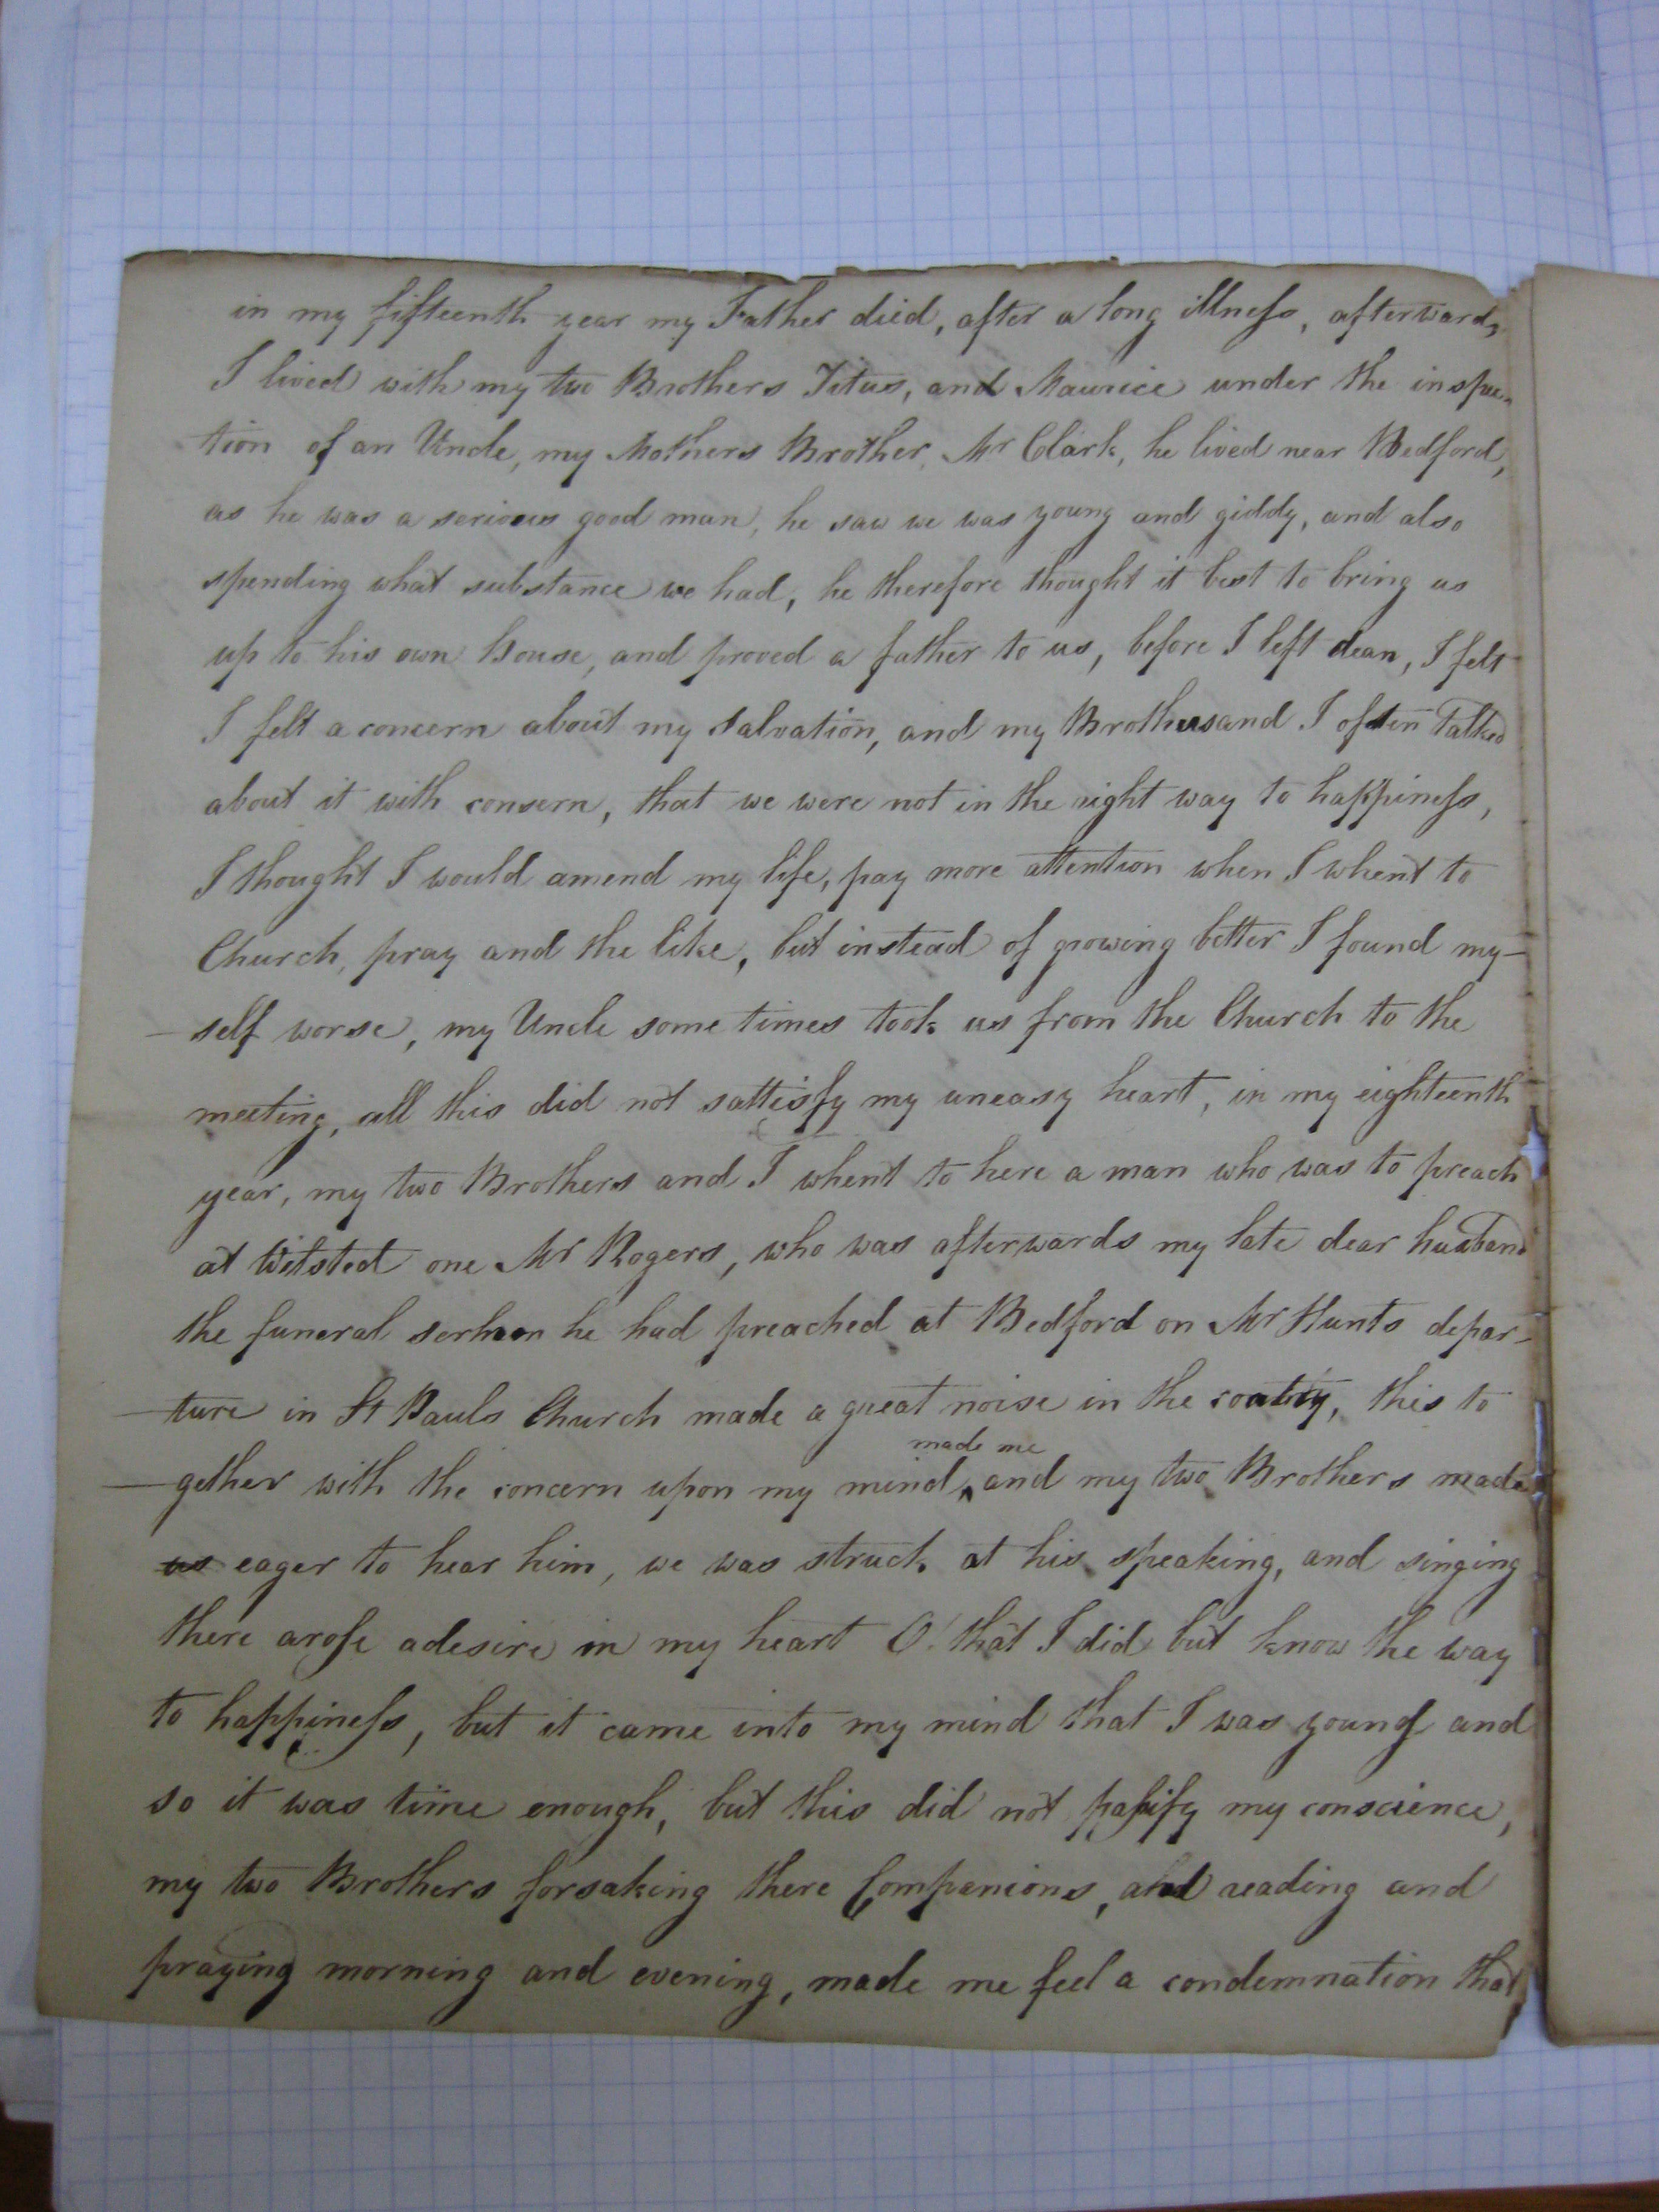 in my fifteenth year my Father died, after a long illness, afterwards
I lived with my two Brothers Titus, and Maurice under the inspec-
tion of an Uncle, my Mothers Brother, Mr Clark, he lived near Bedford,
as he was a serious good man, he saw we was young and giddy, and also
spending what substance we had, he therefore thought it best to bring us
up to his own House, and proved a father to us, before I left dean, I felt
I felt a concern about my Salvation, and my Brothers and I often talked
about it with consern, that we were not in the right way to happiness,
I thought I would amend my life, pay more attention when I whent to
Church, pray and the like, but instead of growing better I found my-
-self worse, my Uncle some times took us from the Church to the
meeting, all this did not sattisfy my uneasy heart, in my eighteenth
year, my two Brothers and I whent to here a man who was to preach
at Wilsted one Mr Rogers, who was afterwards my late dear husband
the funeral sermon he had preached at Bedford on Mr Hunts depar-
-ture in St Pauls Church made a great noise in the this to
made me
-gether with the concern upon my mind, and my two Brothers made
us eager to hear him, we was struck at his speaking, and singing
there arose a desire in my heart O! that I did but know the way
to happiness, but it came into my mind that I was young and
so it was time enough, but this did not passify my conscience,
my two Brothers forsaking there Companions, and reading and
praying morning and evening, made me feel a condemnation that